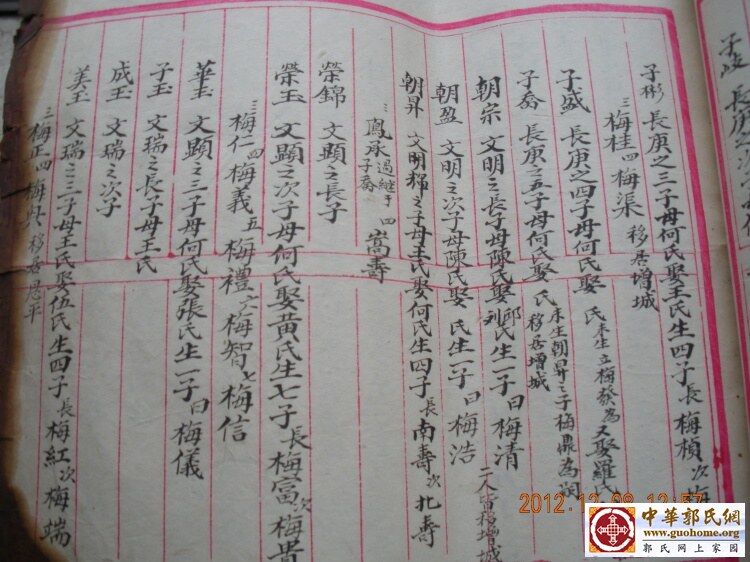 子岐 長庚之
子彬 長庚之三子母何氏娶王氏生四子長梅楨次梅
三梅桂四梅渠 移居增城
子盛 長庚之四子母何氏娶 氏未生立梅發為 又娶羅氏
子喬 長庚之五子母何氏娶 氏未生朝昇之子梅鼎為 移居增城
朝宗 文明之長子母陳氏娶 劉氏生一子曰梅清
朝盈 文明之次子母陳氏娶 氏生一子曰梅浩 二人皆移增城
朝昇 文明 之子母王氏娶何氏生四子長南壽次北壽
三鳳承過継于子喬 四嵩壽
榮錦 文顯之長子
榮玉 文顯之次子母何氏娶黃氏生七子長梅富次梅貴
三梅仁四梅義五梅禮六梅智七梅信
華玉 文顯之三子母何氏娶張氏生一子曰梅儀
子玉 文瑞之長子母王氏
成玉 文瑞之次子
美玉 文瑞之三子母王氏娶伍氏生四子長梅紅次梅端
三梅正四梅興 移居恩平
2012.12.08 12:57
中華郭氏網
www.guohome.org
郭氏网上家园